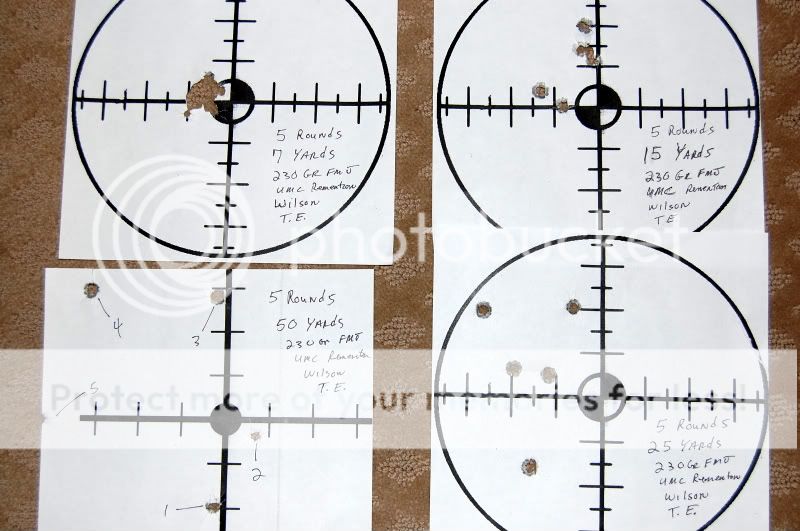 5 Rounds
7 YARDS
230 GR FMJ
UMC Rementron
Wilson
T.E.
5 Rounds
15 YARDS
230 GR FMJ
UMC Rementron
Wilson
T.E.
photobucket
4
3
5 Rounds
50 YARDS
230 Gr FMJ
UMC Rementron
Wilson
T.E.
5
2
1
Protect more of your memories for less!
5 Rounds
25 YARDS
230 GR FMJ
UMC Rementron
Wilson
T.E.